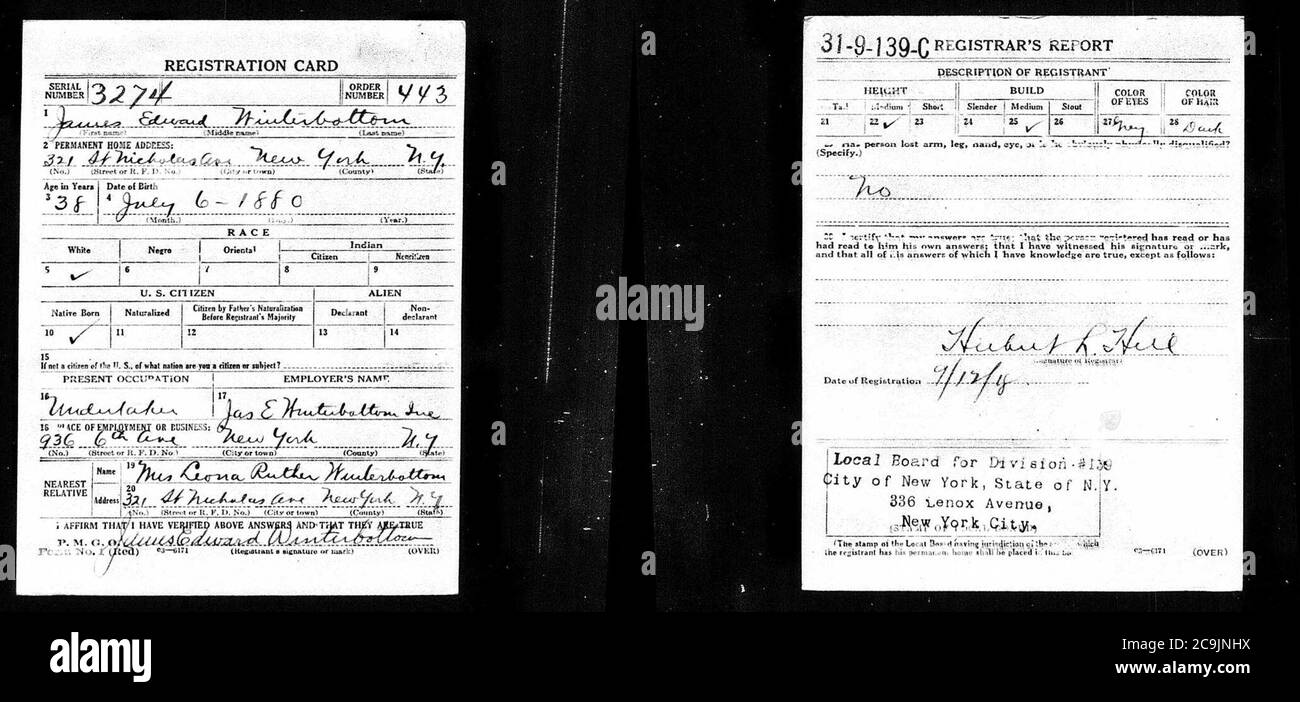 REGISTRATION CARD
SERIAL NUMBER 3274 ORDER NUMBER 443
1 James Edward Winterbottom
(First name) (Middle name) (Last name)
2 PERMANENT HOME ADDRESS:
321 St Nicholas Ave New York N.Y.
(No.) (Street or R. F. D. No.) (City or town) (County) (State)
Age in Years Date of Birth
3 38 4 July 6 - 1880
(Month.) (Day.) (Year.)
RACE
White Negro Oriental Indian
Citizen Noncitizen
5 ✓ 6 7 8 9
U. S. CITIZEN ALIEN
Native Born Naturalized Citizen by Father's Naturalization Before Registrant's Majority Declarant Non-declarant
10 ✓ 11 12 13 14
15
If not a citizen of the U. S., of what nation are you a citizen or subject?
PRESENT OCCUPATION EMPLOYER'S NAME
16 Undertaker 17 Jas E Winterbottom Inc
18 PLACE OF EMPLOYMENT OR BUSINESS:
936 6th Ave New York N.Y
(No.) (Street or R. F. D. No.) (City or town) (County) (State)
NEAREST RELATIVE Name 19 Mrs Leona Ruther Winterbottom
Address 20 321 St Nicholas Ave New York N.Y
(No.) (Street or R. F. D. No.) (City or town) (County) (State)
I AFFIRM THAT I HAVE VERIFIED ABOVE ANSWERS AND THAT THEY ARE TRUE
P. M. G. O. James Edward Winterbottom
Form No. 1 (Red) 03-6171 (Registrant's signature or mark) (OVER)
31-9-139-C REGISTRAR'S REPORT
DESCRIPTION OF REGISTRANT
HEIGHT BUILD COLOR OF EYES COLOR OF HAIR
Tall Medium Short Slender Medium Stout
21 22 ✓ 23 24 25 ✓ 26 27 Grey 28 Dark
29 Has person lost arm, leg, hand, eye, or is he obviously physically disqualified?
(Specify.)
No
30 I certify that my answers are true; that the person registered has read or has
had read to him his own answers; that I have witnessed his signature or mark,
and that all of his answers of which I have knowledge are true, except as follows:
Hubert L. Hill
(Signature of Registrar)
Date of Registration 9/12/18
Local Board for Division #139
City of New York, State of N.Y.
336 Lenox Avenue,
New York City.
(The stamp of the Local Board having jurisdiction of the which
the registrant has his permanent home shall be placed in this
03-6171 (OVER)
alamy
Image ID: 2C9JNHX
www.alamy.com